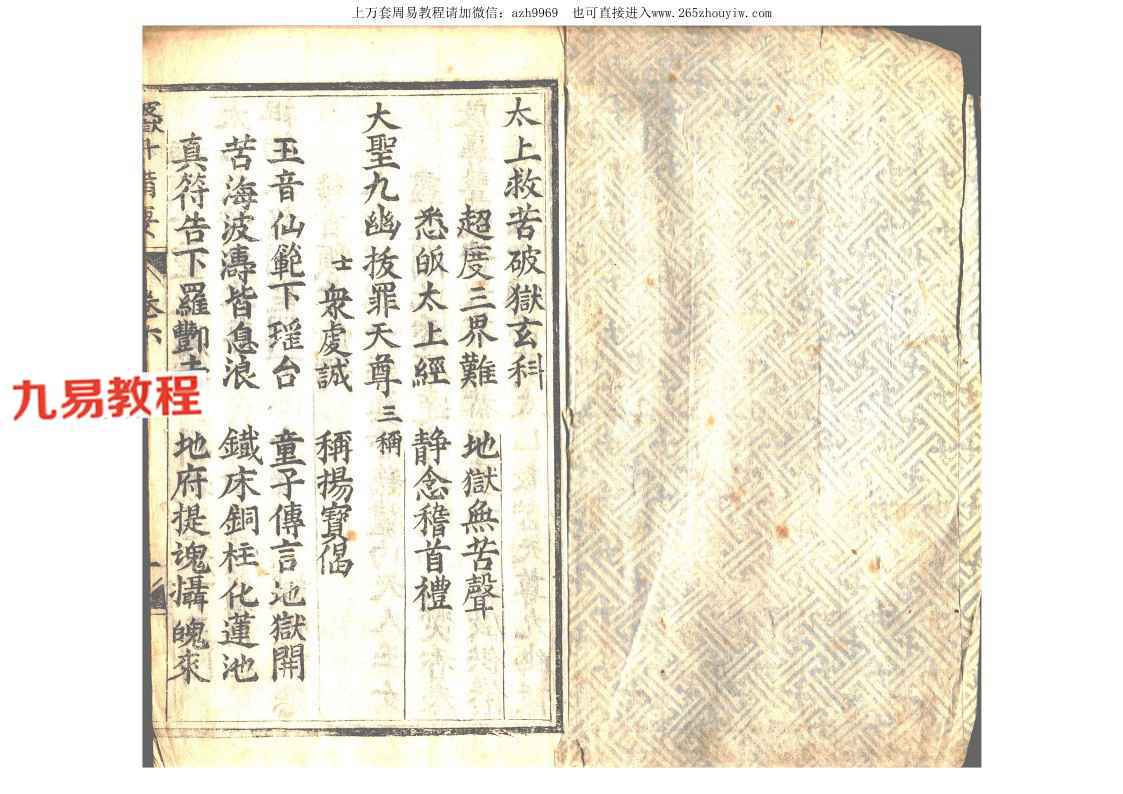 上万套周易教程请加微信：azh9969 也可直接进入www.265zhouyiw.com
太上救苦破獄玄科
超度三界難 地獄無苦聲
悉皈太上經 静念稽首禮
大聖九幽拔罪天尊 三稱
士 衆虔誠 稱揚寶偈
玉音仙範下瑶台 童子傳言地獄開
苦海波濤皆息浪 鐵床銅柱化蓮池
真符告下羅酆 地府提魂攝魄來
卷六
九易教程